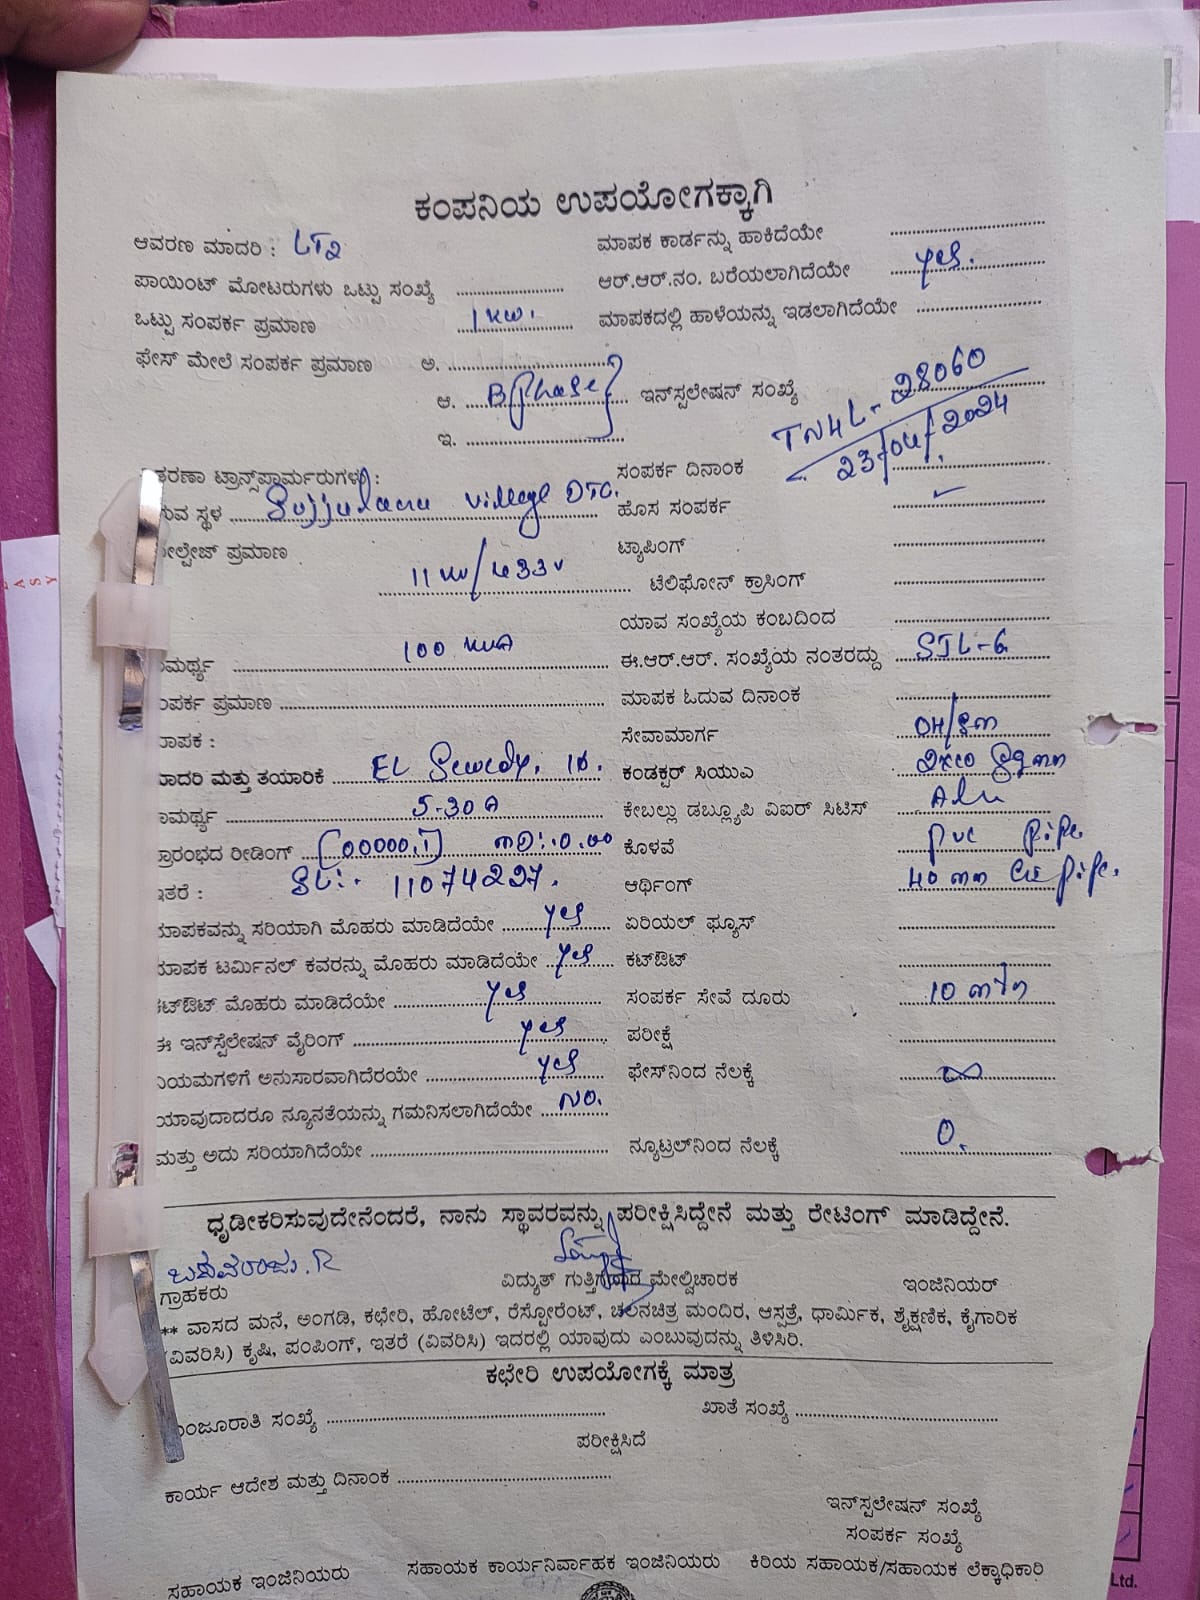 ಕಂಪನಿಯ ಉಪಯೋಗಕ್ಕಾಗಿ
ಆವರಣ ಮಾದರಿ : LT2
ಮಾಪಕ ಕಾರ್ಡನ್ನು ಹಾಕಿದೆಯೇ
ಪಾಯಿಂಟ್ ಮೋಟರುಗಳು ಒಟ್ಟು ಸಂಖ್ಯೆ
ಆರ್.ಆರ್.ನಂ. ಬರೆಯಲಾಗಿದೆಯೇ yes.
ಒಟ್ಟು ಸಂಪರ್ಕ ಪ್ರಮಾಣ 1 KW.
ಮಾಪಕದಲ್ಲಿ ಹಾಳೆಯನ್ನು ಇಡಲಾಗಿದೆಯೇ
ಫೇಸ್ ಮೇಲೆ ಸಂಪರ್ಕ ಪ್ರಮಾಣ ಅ.
ಆ. B Phase
ಇನ್‌ಸ್ಪಲೇಷನ್ ಸಂಖ್ಯೆ TN4L-28060
ಇ.
ಸಂಪರ್ಕ ದಿನಾಂಕ 23/04/2024
ತರಣಾ ಟ್ರಾನ್ಸ್‌ಫಾರ್ಮರುಗಳು :
ರುವ ಸ್ಥಳ village DTC.
ಹೊಸ ಸಂಪರ್ಕ
ೋಲ್ಟೇಜ್ ಪ್ರಮಾಣ 11 KV/433V
ಟ್ಯಾಪಿಂಗ್
ಟೆಲಿಫೋನ್ ಕ್ರಾಸಿಂಗ್
ಯಾವ ಸಂಖ್ಯೆಯ ಕಂಬದಿಂದ
ಾಮರ್ಥ್ಯ 100 KVA
ಈ.ಆರ್.ಆರ್. ಸಂಖ್ಯೆಯ ನಂತರದ್ದು SJL-6
ಂಪರ್ಕ ಪ್ರಮಾಣ
ಮಾಪಕ ಓದುವ ದಿನಾಂಕ
ಮಾಪಕ :
ಸೇವಾಮಾರ್ಗ
ಮಾದರಿ ಮತ್ತು ತಯಾರಿಕೆ EL
ಕಂಡಕ್ಟರ್ ಸಿಯುಎ 2x10 Sqmm
ಾಮರ್ಥ್ಯ 5-30A
ಕೇಬಲ್ಲು ಡಬ್ಲ್ಯೂಪಿ ವಿಐಆರ್ ಸಿಟಿಸ್ Alu
ಪ್ರಾರಂಭದ ರೀಡಿಂಗ್ (00000.1) MD:.0.00
ಕೊಳವೆ PVC pipe.
ಇತರೆ : SL:. 11074227.
ಆರ್ಥಿಂಗ್ 40 mm pipe.
ಮಾಪಕವನ್ನು ಸರಿಯಾಗಿ ಮೊಹರು ಮಾಡಿದೆಯೇ yes
ಏರಿಯಲ್ ಫ್ಯೂಸ್
ಮಾಪಕ ಟರ್ಮಿನಲ್ ಕವರನ್ನು ಮೊಹರು ಮಾಡಿದೆಯೇ yes
ಕಟ್‌ಔಟ್
ಕಟ್‌ಔಟ್ ಮೊಹರು ಮಾಡಿದೆಯೇ yes
ಸಂಪರ್ಕ ಸೇವೆ ದೂರು 10 mtr
ಈ ಇನ್‌ಸ್ಟಲೇಷನ್ ವೈರಿಂಗ್ yes
ಪರೀಕ್ಷೆ
ನಿಯಮಗಳಿಗೆ ಅನುಸಾರವಾಗಿದೆರಯೇ yes
ಫೇಸ್‌ನಿಂದ ನೆಲಕ್ಕೆ ∞
ಯಾವುದಾದರೂ ನ್ಯೂನತೆಯನ್ನು ಗಮನಿಸಲಾಗಿದೆಯೇ NO.
ಮತ್ತು ಅದು ಸರಿಯಾಗಿದೆಯೇ
ನ್ಯೂಟ್ರಲ್‌ನಿಂದ ನೆಲಕ್ಕೆ 0.
ಧೃಡೀಕರಿಸುವುದೇನೆಂದರೆ, ನಾನು ಸ್ಥಾವರವನ್ನು ಪರೀಕ್ಷಿಸಿದ್ದೇನೆ ಮತ್ತು ರೇಟಿಂಗ್ ಮಾಡಿದ್ದೇನೆ.
ಬಸವರಾಜು. R
ಗ್ರಾಹಕರು
ವಿದ್ಯುತ್ ಗುತ್ತಿಗೆದಾರ ಮೇಲ್ವಿಚಾರಕ
ಇಂಜಿನಿಯರ್
** ವಾಸದ ಮನೆ, ಅಂಗಡಿ, ಕಛೇರಿ, ಹೋಟೆಲ್, ರೆಸ್ಟೋರೆಂಟ್, ಚಲನಚಿತ್ರ ಮಂದಿರ, ಆಸ್ಪತ್ರೆ, ಧಾರ್ಮಿಕ, ಶೈಕ್ಷಣಿಕ, ಕೈಗಾರಿಕ
(ವಿವರಿಸಿ) ಕೃಷಿ, ಪಂಪಿಂಗ್, ಇತರೆ (ವಿವರಿಸಿ) ಇದರಲ್ಲಿ ಯಾವುದು ಎಂಬುವುದನ್ನು ತಿಳಿಸಿರಿ.
ಕಛೇರಿ ಉಪಯೋಗಕ್ಕೆ ಮಾತ್ರ
ಮಂಜೂರಾತಿ ಸಂಖ್ಯೆ
ಖಾತೆ ಸಂಖ್ಯೆ
ಪರೀಕ್ಷಿಸಿದೆ
ಕಾರ್ಯ ಆದೇಶ ಮತ್ತು ದಿನಾಂಕ
ಇನ್‌ಸ್ಪಲೇಷನ್ ಸಂಖ್ಯೆ
ಸಂಪರ್ಕ ಸಂಖ್ಯೆ
ಸಹಾಯಕ ಇಂಜಿನಿಯರು
ಸಹಾಯಕ ಕಾರ್ಯನಿರ್ವಾಹಕ ಇಂಜಿನಿಯರು
ಕಿರಿಯ ಸಹಾಯಕ/ಸಹಾಯಕ ಲೆಕ್ಕಾಧಿಕಾರಿ
Ltd.